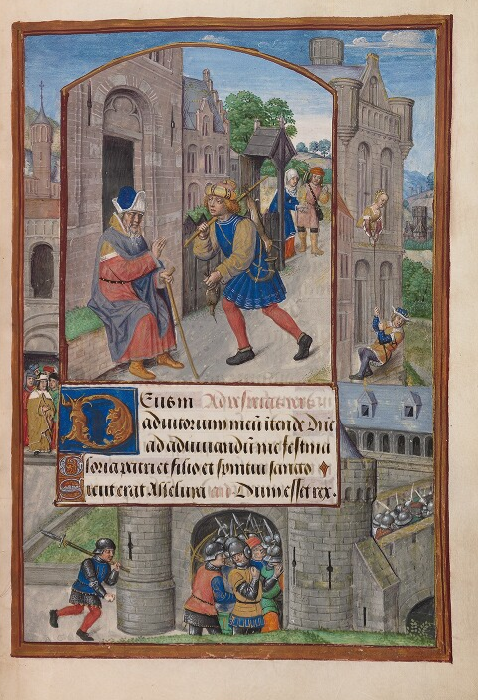 Deus in Ad vesperas
adiutorium meū ītende Dñe
ad adiuuandū me festina
Gloria patri et filio et spiritui sancto
Sicut erat Alleluya Dum esset rex.